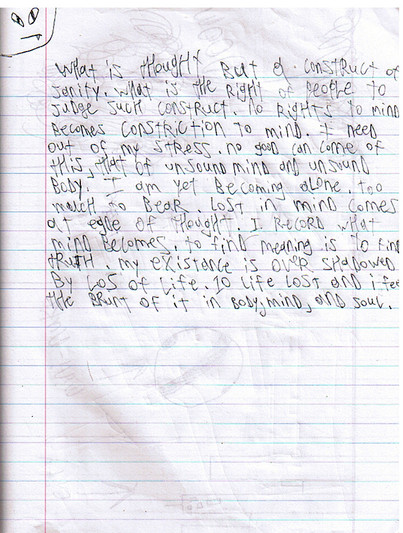 What is thought But a construct of
sanity. What is the Right of People to
judge such construct. No Rights to mind
Becomes constriction to mind. I need
out of my stress. no good can come of
this, that of unsound mind and unsound
Body. I am yet Becoming alone. too
much to Bear. Lost in mind comes
at edge of thought. I Record what
mind Becomes. to find meaning is to find
tRuth. my existance is over shadowed
By Los of Life. to Life Lost and i feel
the Brunt of it in Body, mind, and soul.